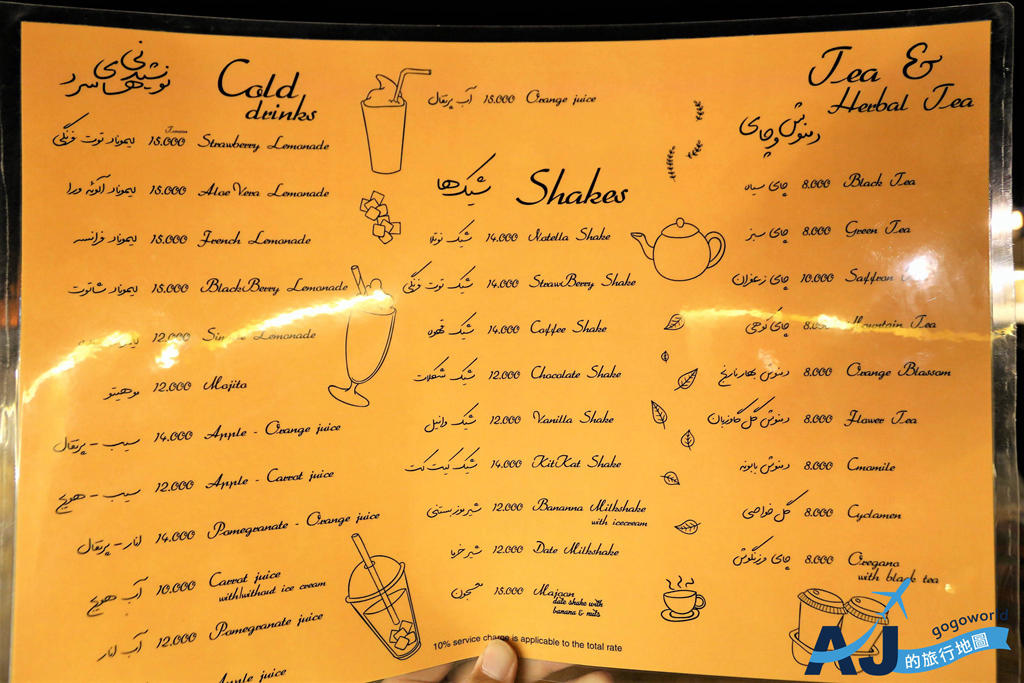 نوشیدنی
های سرد
Cold
drinks
Tomans
لیموناد توت فرنگی 15.000 Strawberry Lemonade
لیموناد آلوئه ورا 15.000 Aloe Vera Lemonade
لیموناد فرانسه 15.000 French Lemonade
لیموناد شاتوت 15.000 BlackBerry Lemonade
12.000 Simple Lemonade
موهیتو 12.000 Mojito
سیب - پرتقال 14.000 Apple - Orange juice
سیب - هویج 12.000 Apple - Carrot juice
انار - پرتقال 14.000 Pomegranate - Orange juice
آب هویج 10.000 Carrot juice
with/without ice cream
آب انار 12.000 Pomegranate juice
Apple juice
آب پرتقال 15.000 Orange juice
شیک ها Shakes
شیک نوتلا 14.000 Nutella Shake
شیک توت فرنگی 14.000 StrawBerry Shake
شیک قهوه 14.000 Coffee Shake
شیک شکلات 12.000 Chocolate Shake
شیک وانیل 12.000 Vanilla Shake
شیک کیت کت 14.000 KitKat Shake
شیر موز بستنی 12.000 Bananna Milkshake
with icecream
شیر خرما 12.000 Date Milkshake
معجون 15.000 Majoon
date shake with
banana & nuts
10% service charge is applicable to the total rate
Tea &
Herbal Tea
دمنوش
و چای
چای سیاه 8.000 Black Tea
چای سبز 8.000 Green Tea
چای زعفران 10.000 Saffron
چای کوهی 8.000 Mountain Tea
دمنوش بهار نارنج 8.000 Orange Blossom
دمنوش گل گاوزبان 8.000 Flower Tea
دمنوش بابونه 8.000 Cmomile
8.000 Cyclamen
چای مرزنگوش 8.000 Oregano
with black tea
AJ
的旅行地圖
gogoworld